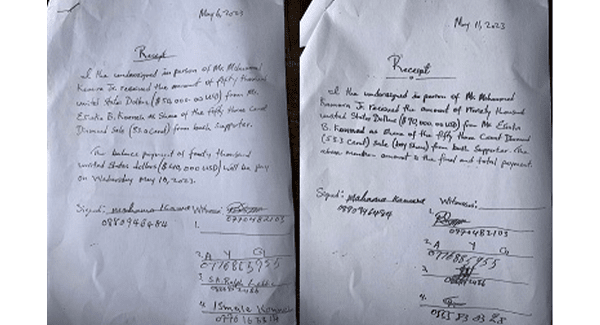 May 6, 2023
Receipt
I the undersigned in person of Mr. Mohammed
Kamara Jr. received the amount of fifty thousand
united States Dollars ($50,000.00 USD) from Mr.
B. as share of the fifty three Carat
Diamond Sale (53.0 Carat) from both Supporter.
The balance payment of fourty thousand
united states dollars ($40,000 USD) will be pay
on Wednesday May 10, 2023.
Signed: Witnesses:
0880946484
1. 0770482103
2. A Y G
0776885955
3. S.A. Ralph
4. Ismale
May 11, 2023
Receipt
I the undersigned in person of Mr Mohammed
Kamara Jr. received the amount of Ninety thousand
united States Dollars ($90,000 USD) from Mr.
B. as share of the fifty three Carat Diamond
(53.3 carat) Sale (my share) from both Supporter. The
above mention amount is the final and total payment.
Signed: Witnesses:
0880946484
1.
0770482103
2. A Y G
0776885955
3.
4.